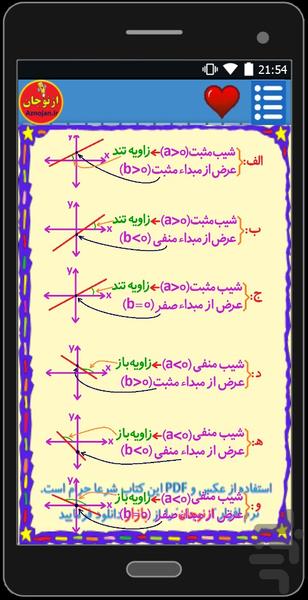 21:54
ازنوجان
Aznojan.ir
الف: شیب مثبت (a>o) ← زاویه تند
عرض از مبداء مثبت (b>o)
y
x
ب: شیب مثبت (a>o) ← زاویه تند
عرض از مبداء منفی (b<o)
y
x
ج: شیب مثبت (a>o) ← زاویه تند
عرض از مبداء صفر (b=o)
y
x
د: شیب منفی (a<o) ← زاویه باز
عرض از مبداء مثبت (b>o)
y
x
ه: شیب منفی (a<o) ← زاویه باز
عرض از مبداء منفی (b<o)
y
x
استفاده از عکس و PDF این کتاب شرعا حرام است.
و: شیب منفی (a<o) ← زاویه باز
عرض از مبداء صفر (b=o)
y
x
نرم افزار ازنوجان از بازار دانلود فرمایید